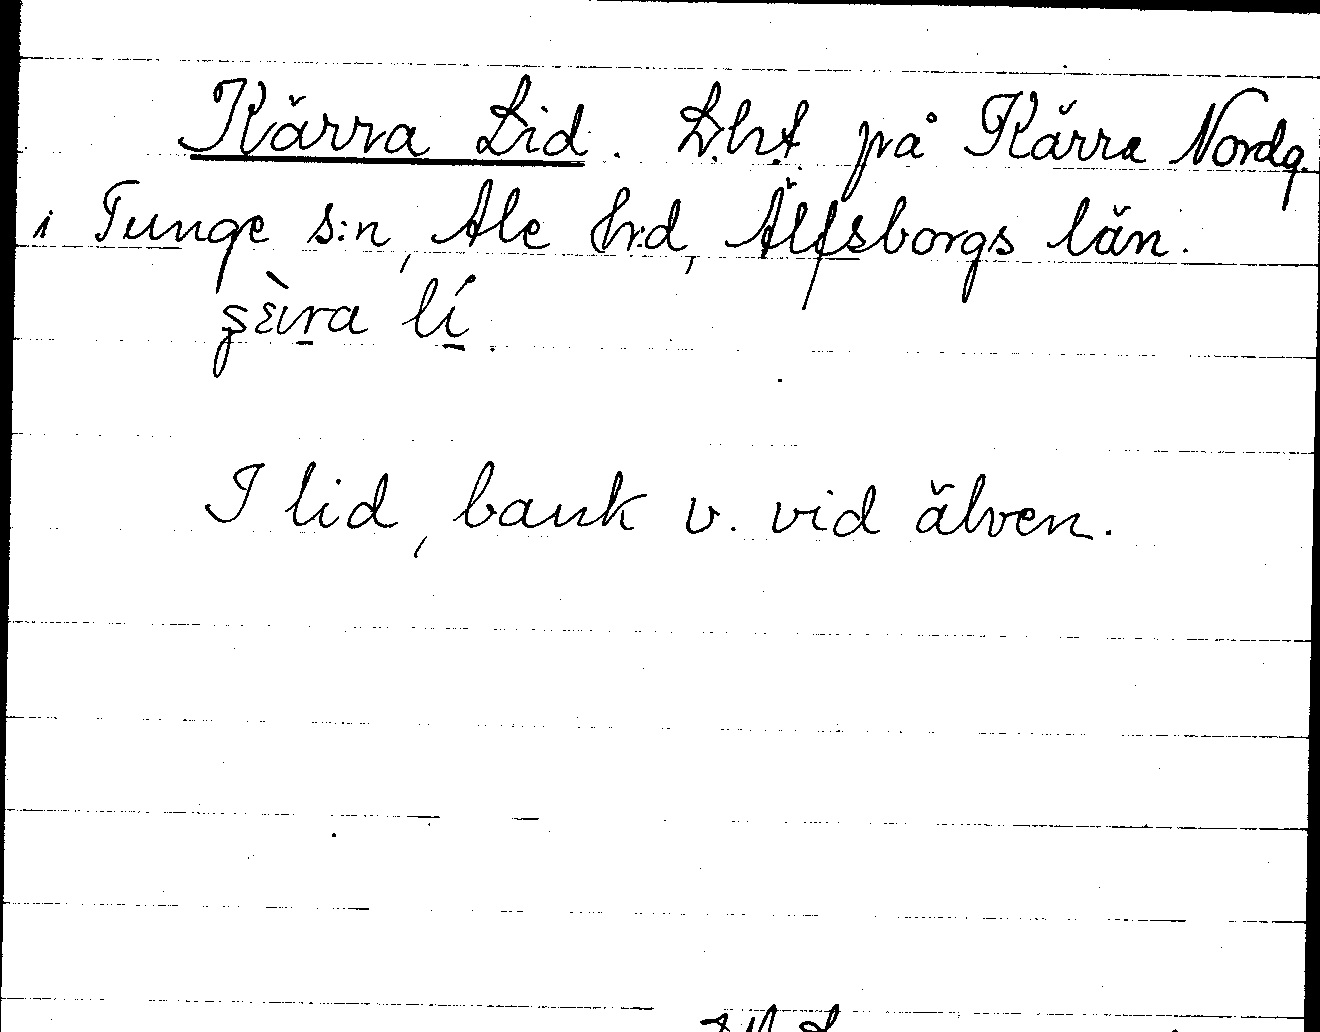 Kärra Lid. L.h.t på Kärra Nordg.
i Tunge s:n, Ale hrd, Älfsborgs län.
lí.
I lid, bank v. vid älven.